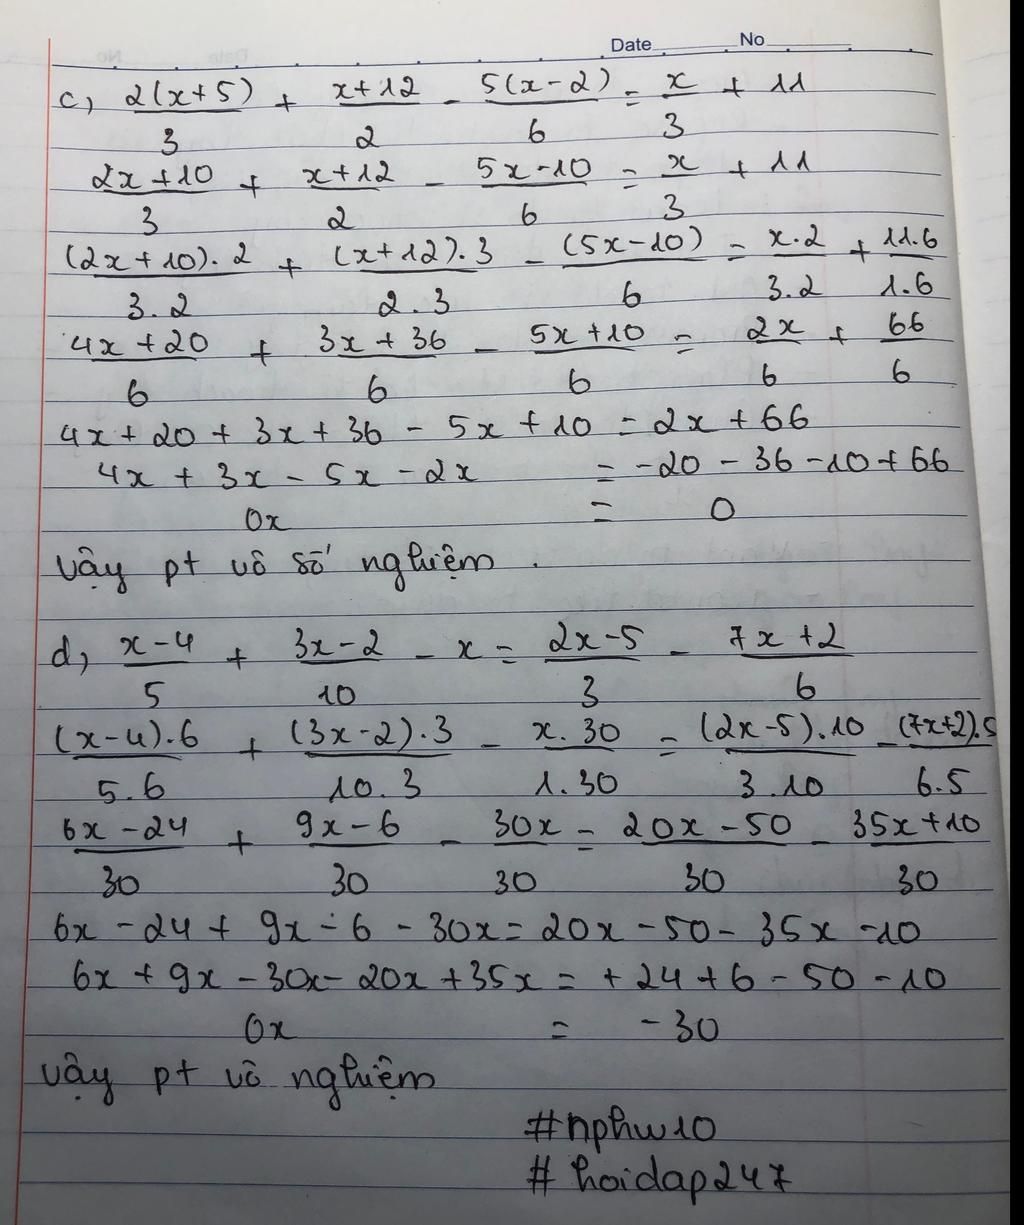 Date No
c, 2(x+5)/3 + x+12/2 - 5(x-2)/6 = x/3 + 11
2x+10/3 + x+12/2 - 5x-10/6 = x/3 + 11
(2x+10).2/3.2 + (x+12).3/2.3 - (5x-10)/6 = x.2/3.2 + 11.6/1.6
4x+20/6 + 3x+36/6 - 5x+10/6 = 2x/6 + 66/6
4x+20+3x+36-5x+10=2x+66
4x+3x-5x-2x = -20-36-10+66
0x = 0
Vậy pt vô số nghiệm.
d, x-4/5 + 3x-2/10 - x = 2x-5/3 - 7x+2/6
(x-4).6/5.6 + (3x-2).3/10.3 - x.30/1.30 = (2x-5).10/3.10 - (7x+2).5/6.5
6x-24/30 + 9x-6/30 - 30x/30 = 20x-50/30 - 35x+10/30
6x-24+9x-6-30x=20x-50-35x-10
6x+9x-30x-20x+35x=+24+6-50-10
0x = -30
Vậy pt vô nghiệm
#nphw10
#hoidap247